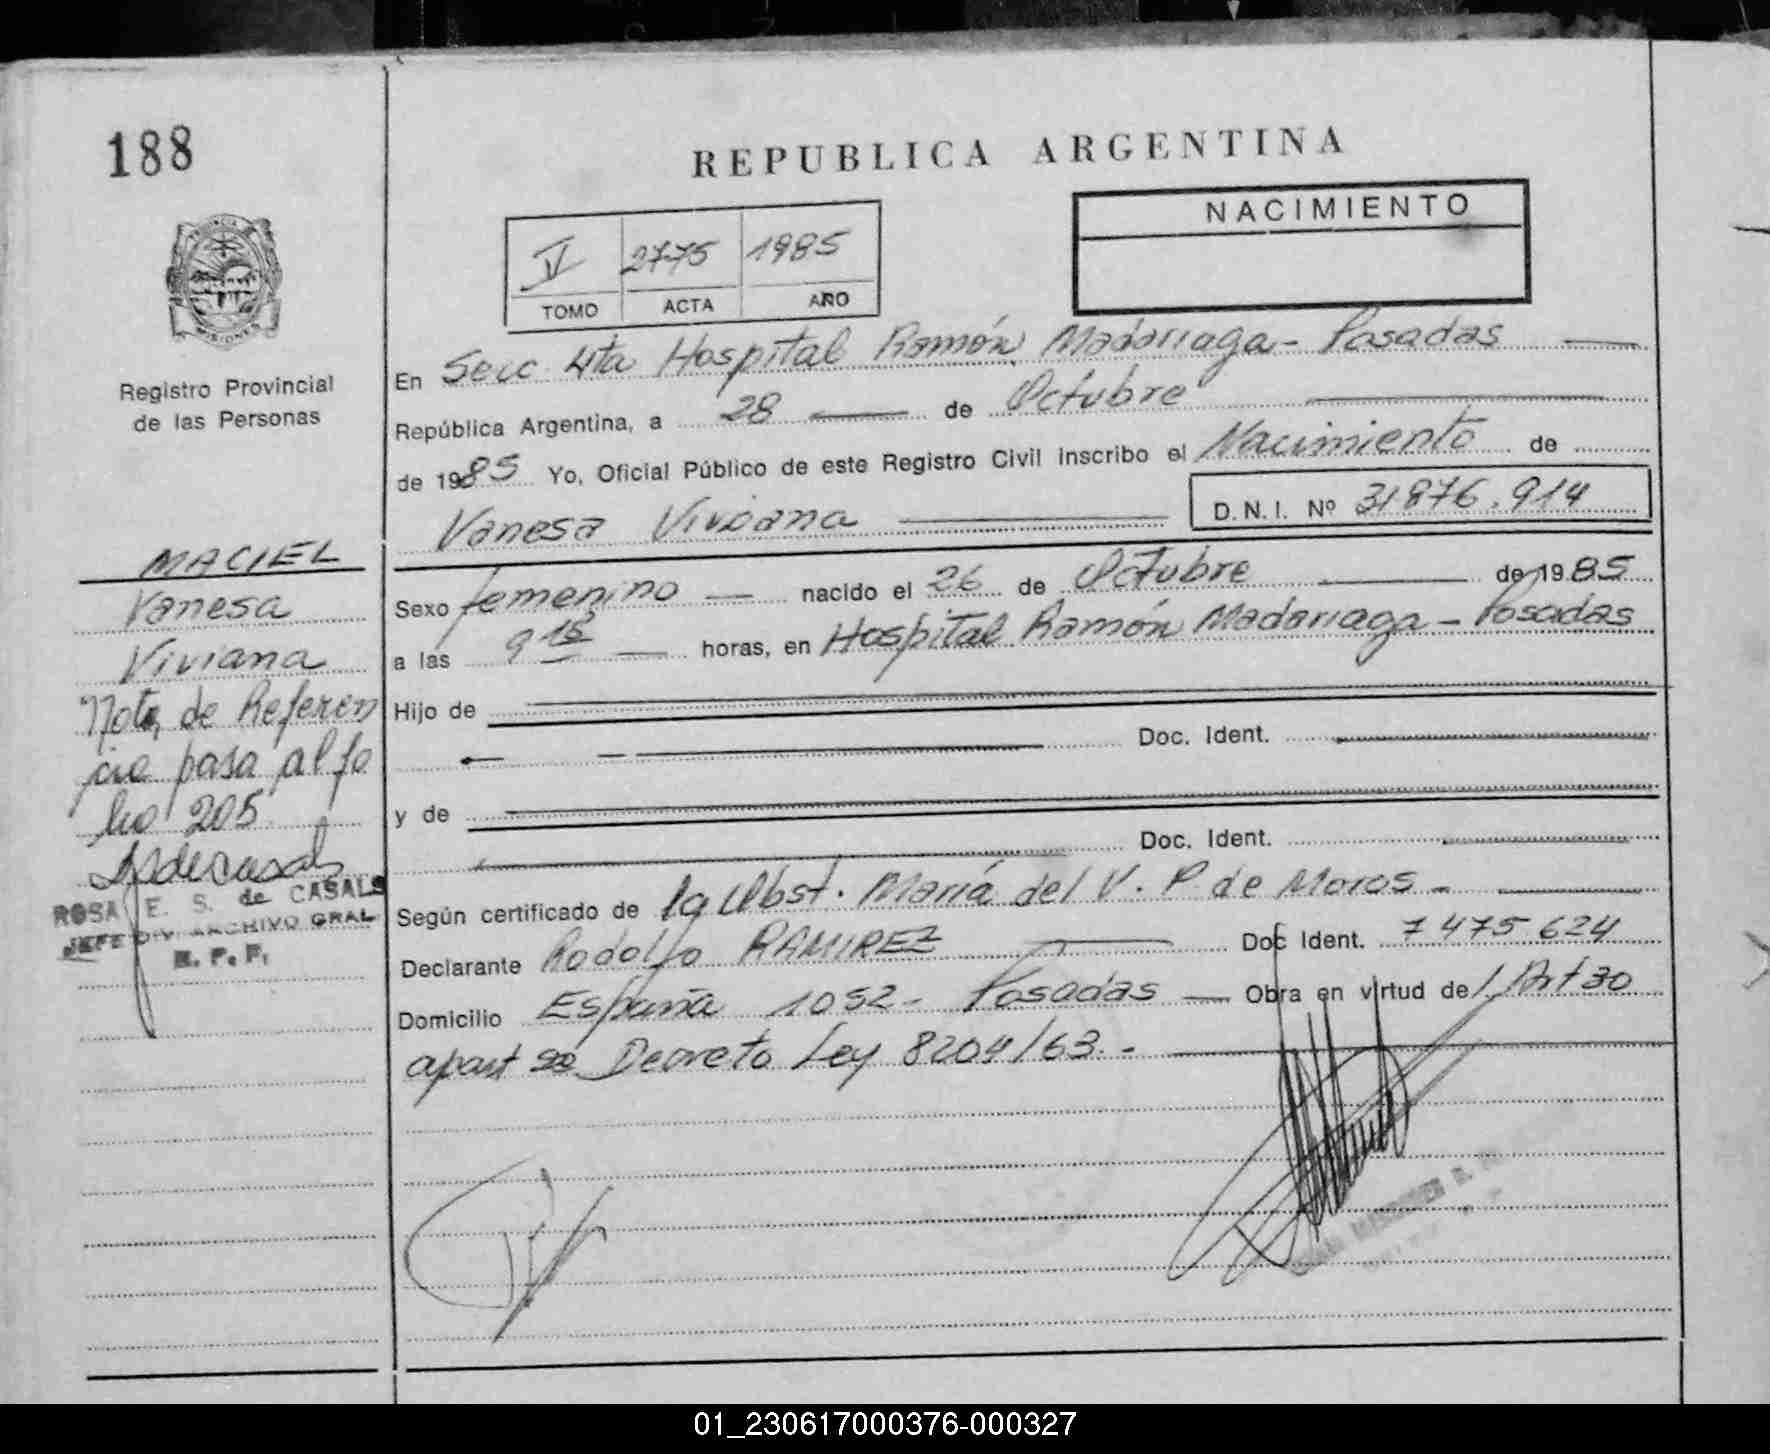 188
REPUBLICA ARGENTINA
NACIMIENTO
V 2775 1985
TOMO ACTA AÑO
MISIONES
Registro Provincial
de las Personas
En Secc 4ta Hospital Ramón Madariaga - Posadas
República Argentina, a 28 de Octubre
de 1985 Yo, Oficial Público de este Registro Civil inscribo el Nacimiento de
Vanesa Viviana D.N.I. Nº 31876.914
MACIEL
Vanesa
Viviana
Nota de Referen
cia pasa al fo
lio 205
ROSA E. S. de CASALS
JEFE DIV. ARCHIVO GRAL
R. P. P.
Sexo femenino nacido el 26 de Octubre de 1985
a las 9 15 horas, en Hospital Ramón Madariaga - Posadas
Hijo de
Doc. Ident.
y de
Doc. Ident.
Según certificado de la Obst. María del V. P. de Moros -
Declarante Rodolfo RAMIREZ Doc Ident. 7475624
Domicilio España 1052 - Posadas Obra en virtud del Art 30
apart Decreto Ley 8204/63. -
01_230617000376-000327